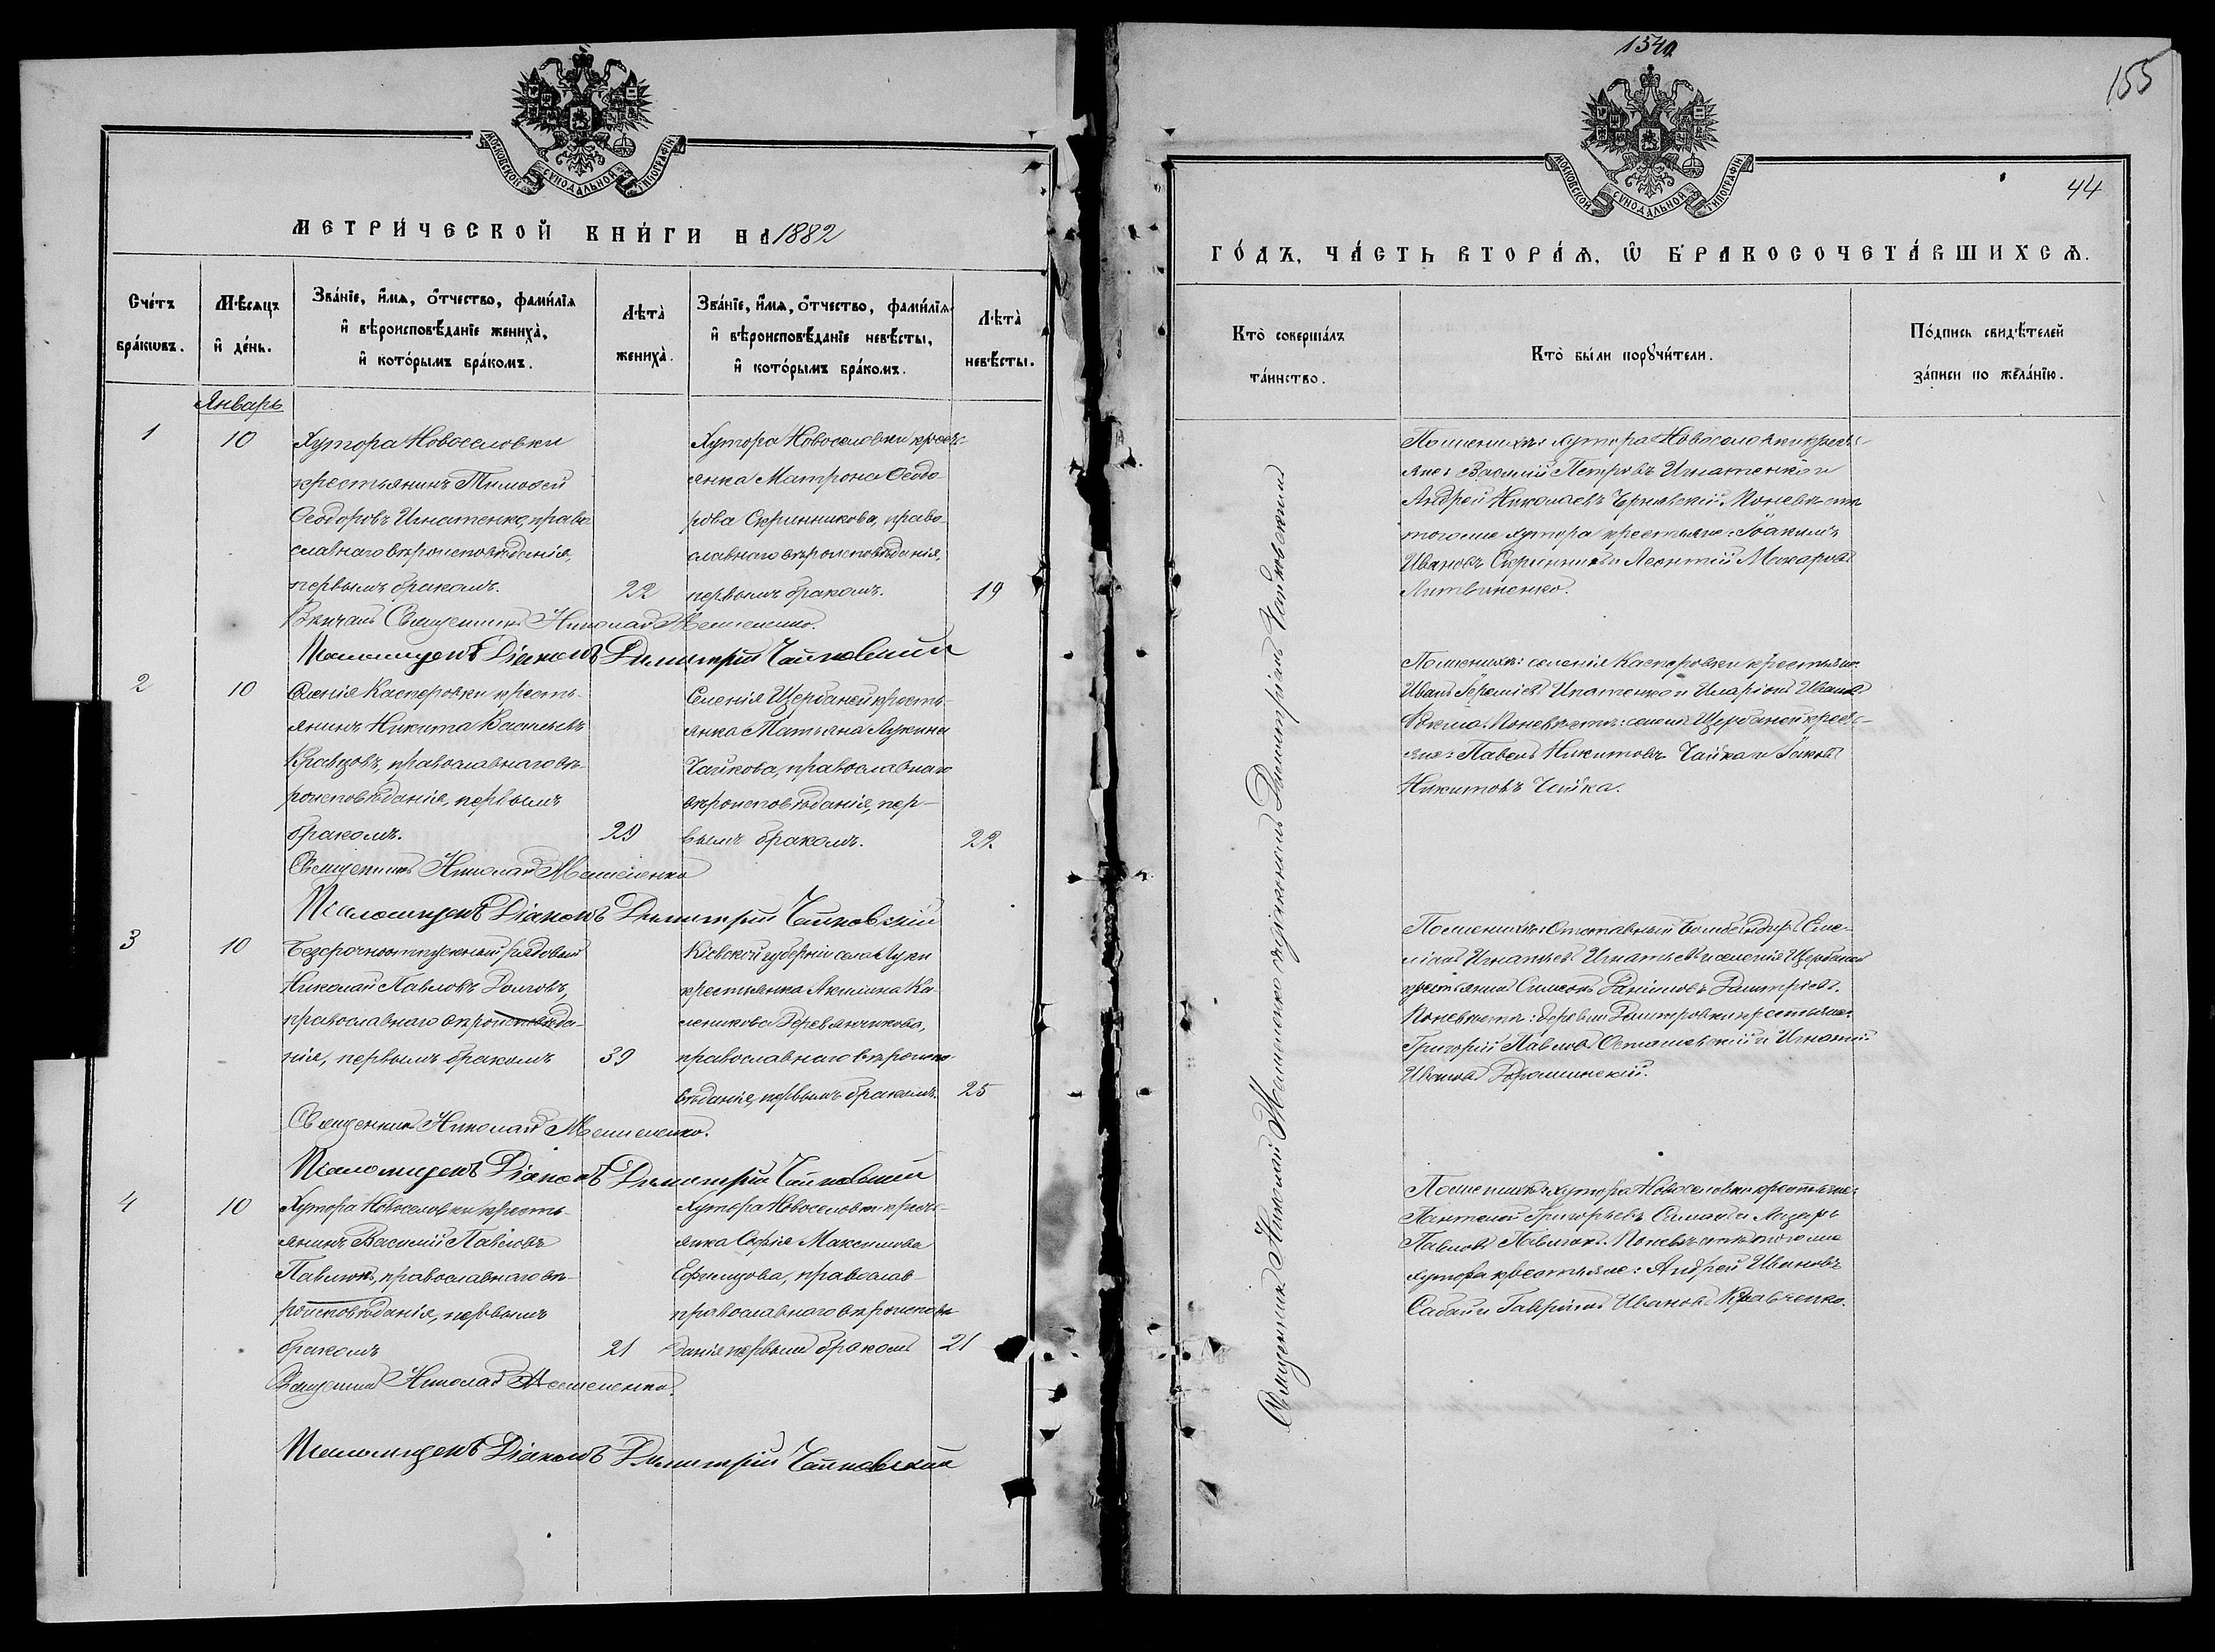 МОСКОВСКОЙ СУНОДАЛЬНОЙ ТИПОГРАФІИ
МЕТРИ́ЧЕСКОЙ КНИ́ГИ НА 1882
Сче́тъ бра́кѡвъ.
Мѣ́сяцъ и҆ де́нь.
Зва́нїе, и҆́мѧ, ѻ҆́тчество, фами́лїѧ
и҆ вѣроисповѣ́данїе жениха̀,
и҆ кото́рымъ бра́комъ.
Лѣта̀ жениха̀.
Зва́нїе, и҆́мѧ, ѻ҆́тчество, фами́лїѧ
и҆ вѣроисповѣ́данїе невѣ́сты,
и҆ кото́рымъ бра́комъ.
Лѣта̀ невѣ́сты.
Январь
1
10
Хутора Новоселовки
крестьянинъ Тимофей
Ѳеодоровъ Игнатенко, право
славнаго вѣроисповѣданія,
первымъ бракомъ.
22
Хутора Новоселовки кресть-
янка Матрона Ѳеодо-
рова Скринникова, право
славнаго вѣроисповѣданія,
первымъ бракомъ.
19
Вѣнчалъ Священникъ Николай
Псаломщикъ Діаконъ Димитрій Чайковскій
2
10
Селенія Касперовки кресть-
янинъ Никита Васильевъ
Кравцовъ, православнаго вѣ-
роисповѣданія, первымъ
бракомъ.
29
Селенія Щербаней кресть-
янка Татьяна Лукина
Чайкова, православнаго
вѣроисповѣданія, пер-
вымъ бракомъ.
22
Священникъ Николай
Псаломщикъ Діаконъ Димитрій Чайковскій
3
10
Безсрочноотпускной рядовый
Николай Павловъ Долговъ,
православнаго вѣроисповѣда-
нія, первымъ бракомъ
39
Кіевской губерніи села Луки
крестьянка Акилина Ка-
леникова Деревянчикова,
православнаго вѣроиспо-
вѣданія, первымъ бракомъ.
25
Священникъ Николай
Псаломщикъ Діаконъ Димитрій Чайковскій
4
10
Хутора Новоселовки кресть-
янинъ Василій Павловъ
Павлюкъ, православнаго вѣ-
роисповѣданія, первымъ
бракомъ
21
Хутора Новоселовки кресть-
янка Софія Максимова
Ефимцова, православ-
православнаго вѣроисповѣ-
данія первымъ бракомъ
21
Священникъ Николай
Псаломщикъ Діаконъ Димитрій Чайковскій
155
МОСКОВСКОЙ СУНОДАЛЬНОЙ ТИПОГРАФІИ
44
ГО́ДЪ, ЧА́СТЬ ВТОРА́Ѧ, Ѡ҆ БРАКОСОЧЕТА́ВШИХСѦ.
Кто̀ соверша́лъ та́инство.
Кто̀ бы́ли порꙋчи́тели.
По́дпись свидѣ́телей за́писи по жела́нїю.
Священникъ Николай съ діакономъ Димитріемъ Чайковскимъ
По женихѣ: хутора Новоселовки кресть-
яне: Василій Петровъ Игнатенко и
Андрей Николаевъ По невѣстѣ:
того же хутора крестьяне: Іоакимъ
Ивановъ Скринникъ и Леонтій Макаровъ
Литвиненко.
По женихѣ: селенія Касперовки крестьяне:
Иванъ Іереміевъ Игнатенко и Иларіонъ Ивановъ
По невѣстѣ: селенія Щербаней кресть-
яне: Павелъ Никитовъ Чайка и Іаковъ
Никитовъ Чайка.
По женихѣ: Отставный бомбандиръ
Игнатьевъ и селенія Щербаней
крестьянинъ Симеонъ Даниловъ
По невѣстѣ: деревни Дмитровки крестьяне:
Григорій Павловъ Осташевскій и Игнатій
Ивановъ
По женихѣ: хутора Новоселовки крестьяне:
Пантелей Григорьевъ и Лазарь
Павловъ Павлюкъ. По невѣстѣ: того же
хутора крестьяне: Андрей Ивановъ
и Гавріилъ Ивановъ Кравченко.